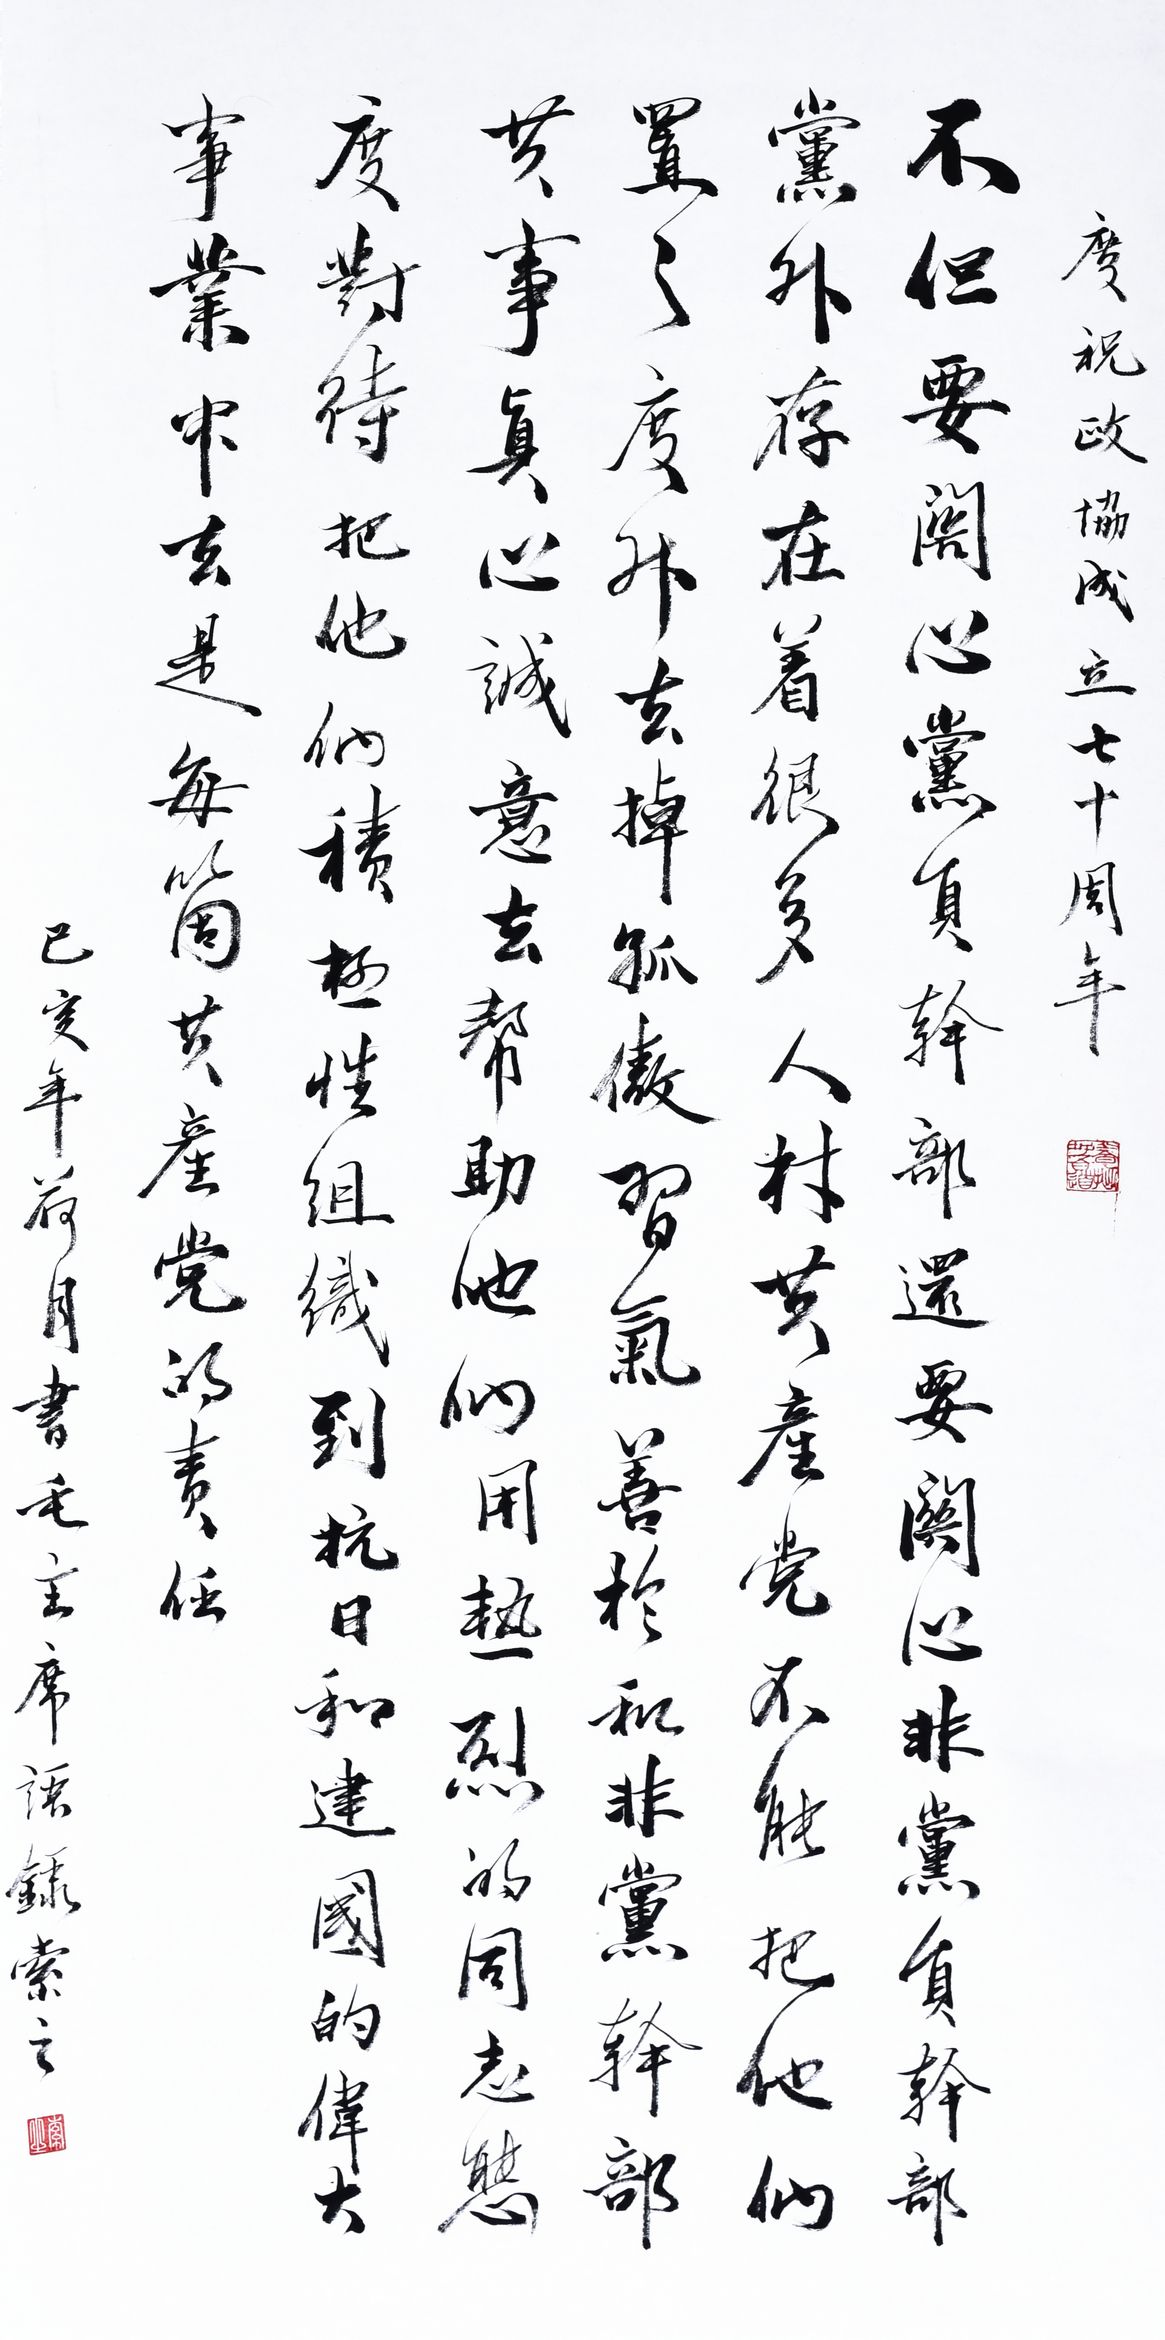 慶祝政協成立七十周年
不但要關心黨員幹部還要關心非黨員幹部
黨外存在着很多人材共産党不能把他们
置之度外去掉孤傲習氣善於和非黨幹部
共事真心誠意去帮助他们用热烈的同志態
度對待把他们積極性組織到抗日和建國的偉大
事業中去是每箇共産党的責任
己亥年荷月書毛主席語録索之
索之